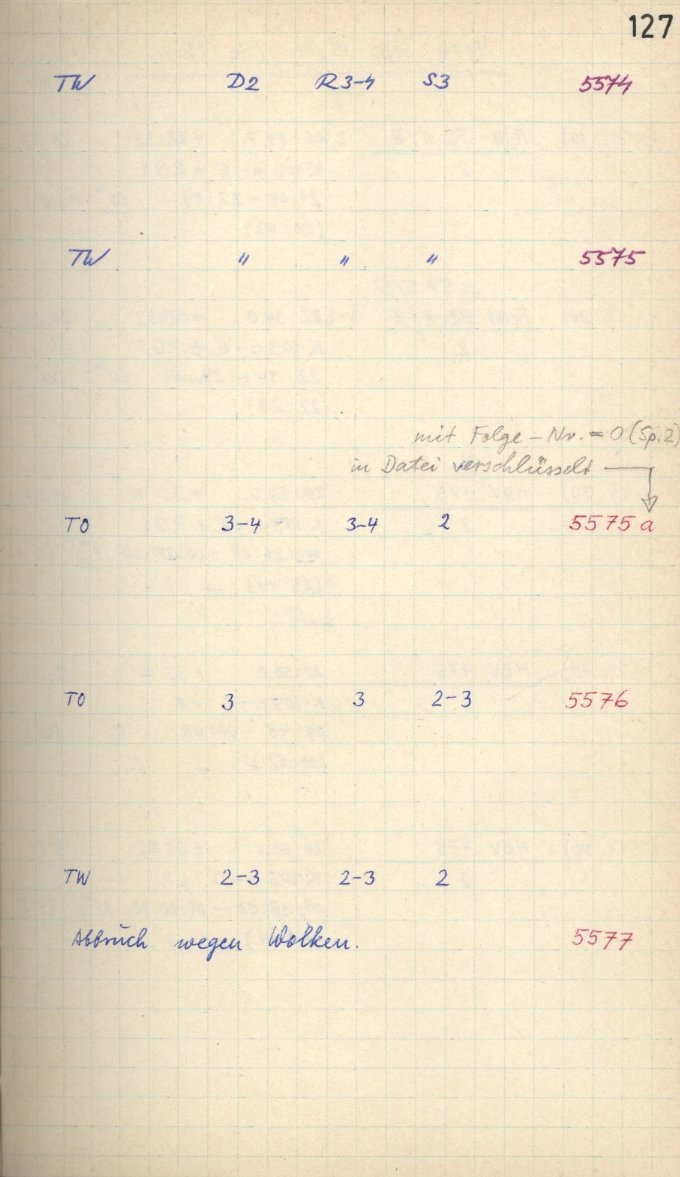 127
TW D2 R3-4 S3 5574
TW " " " 5575
mit Folge-Nr. = 0 (Sp.2)
in Datei verschlüsselt
TO 3-4 3-4 2 5575a
TO 3 3 2-3 5576
TW 2-3 2-3 2
Abbruch wegen Wolken. 5577